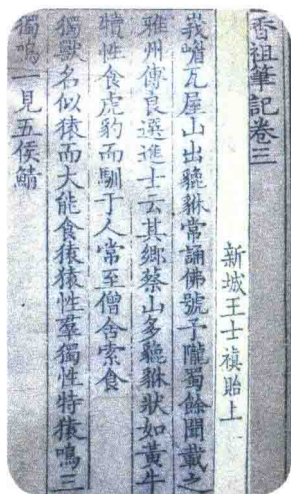 香祖筆記卷三
新城王士禛貽上
峩嵋瓦屋山出貔貅常誦佛號予隴蜀餘聞載之
雅州傅良選進士云其鄉蔡山多貔貅狀如黃牛
犢性食虎豹而馴于人常至僧舍索食
獨獸名似猿而大能食猿猿性羣獨性特猿鳴三
獨鳴一見五侯鯖